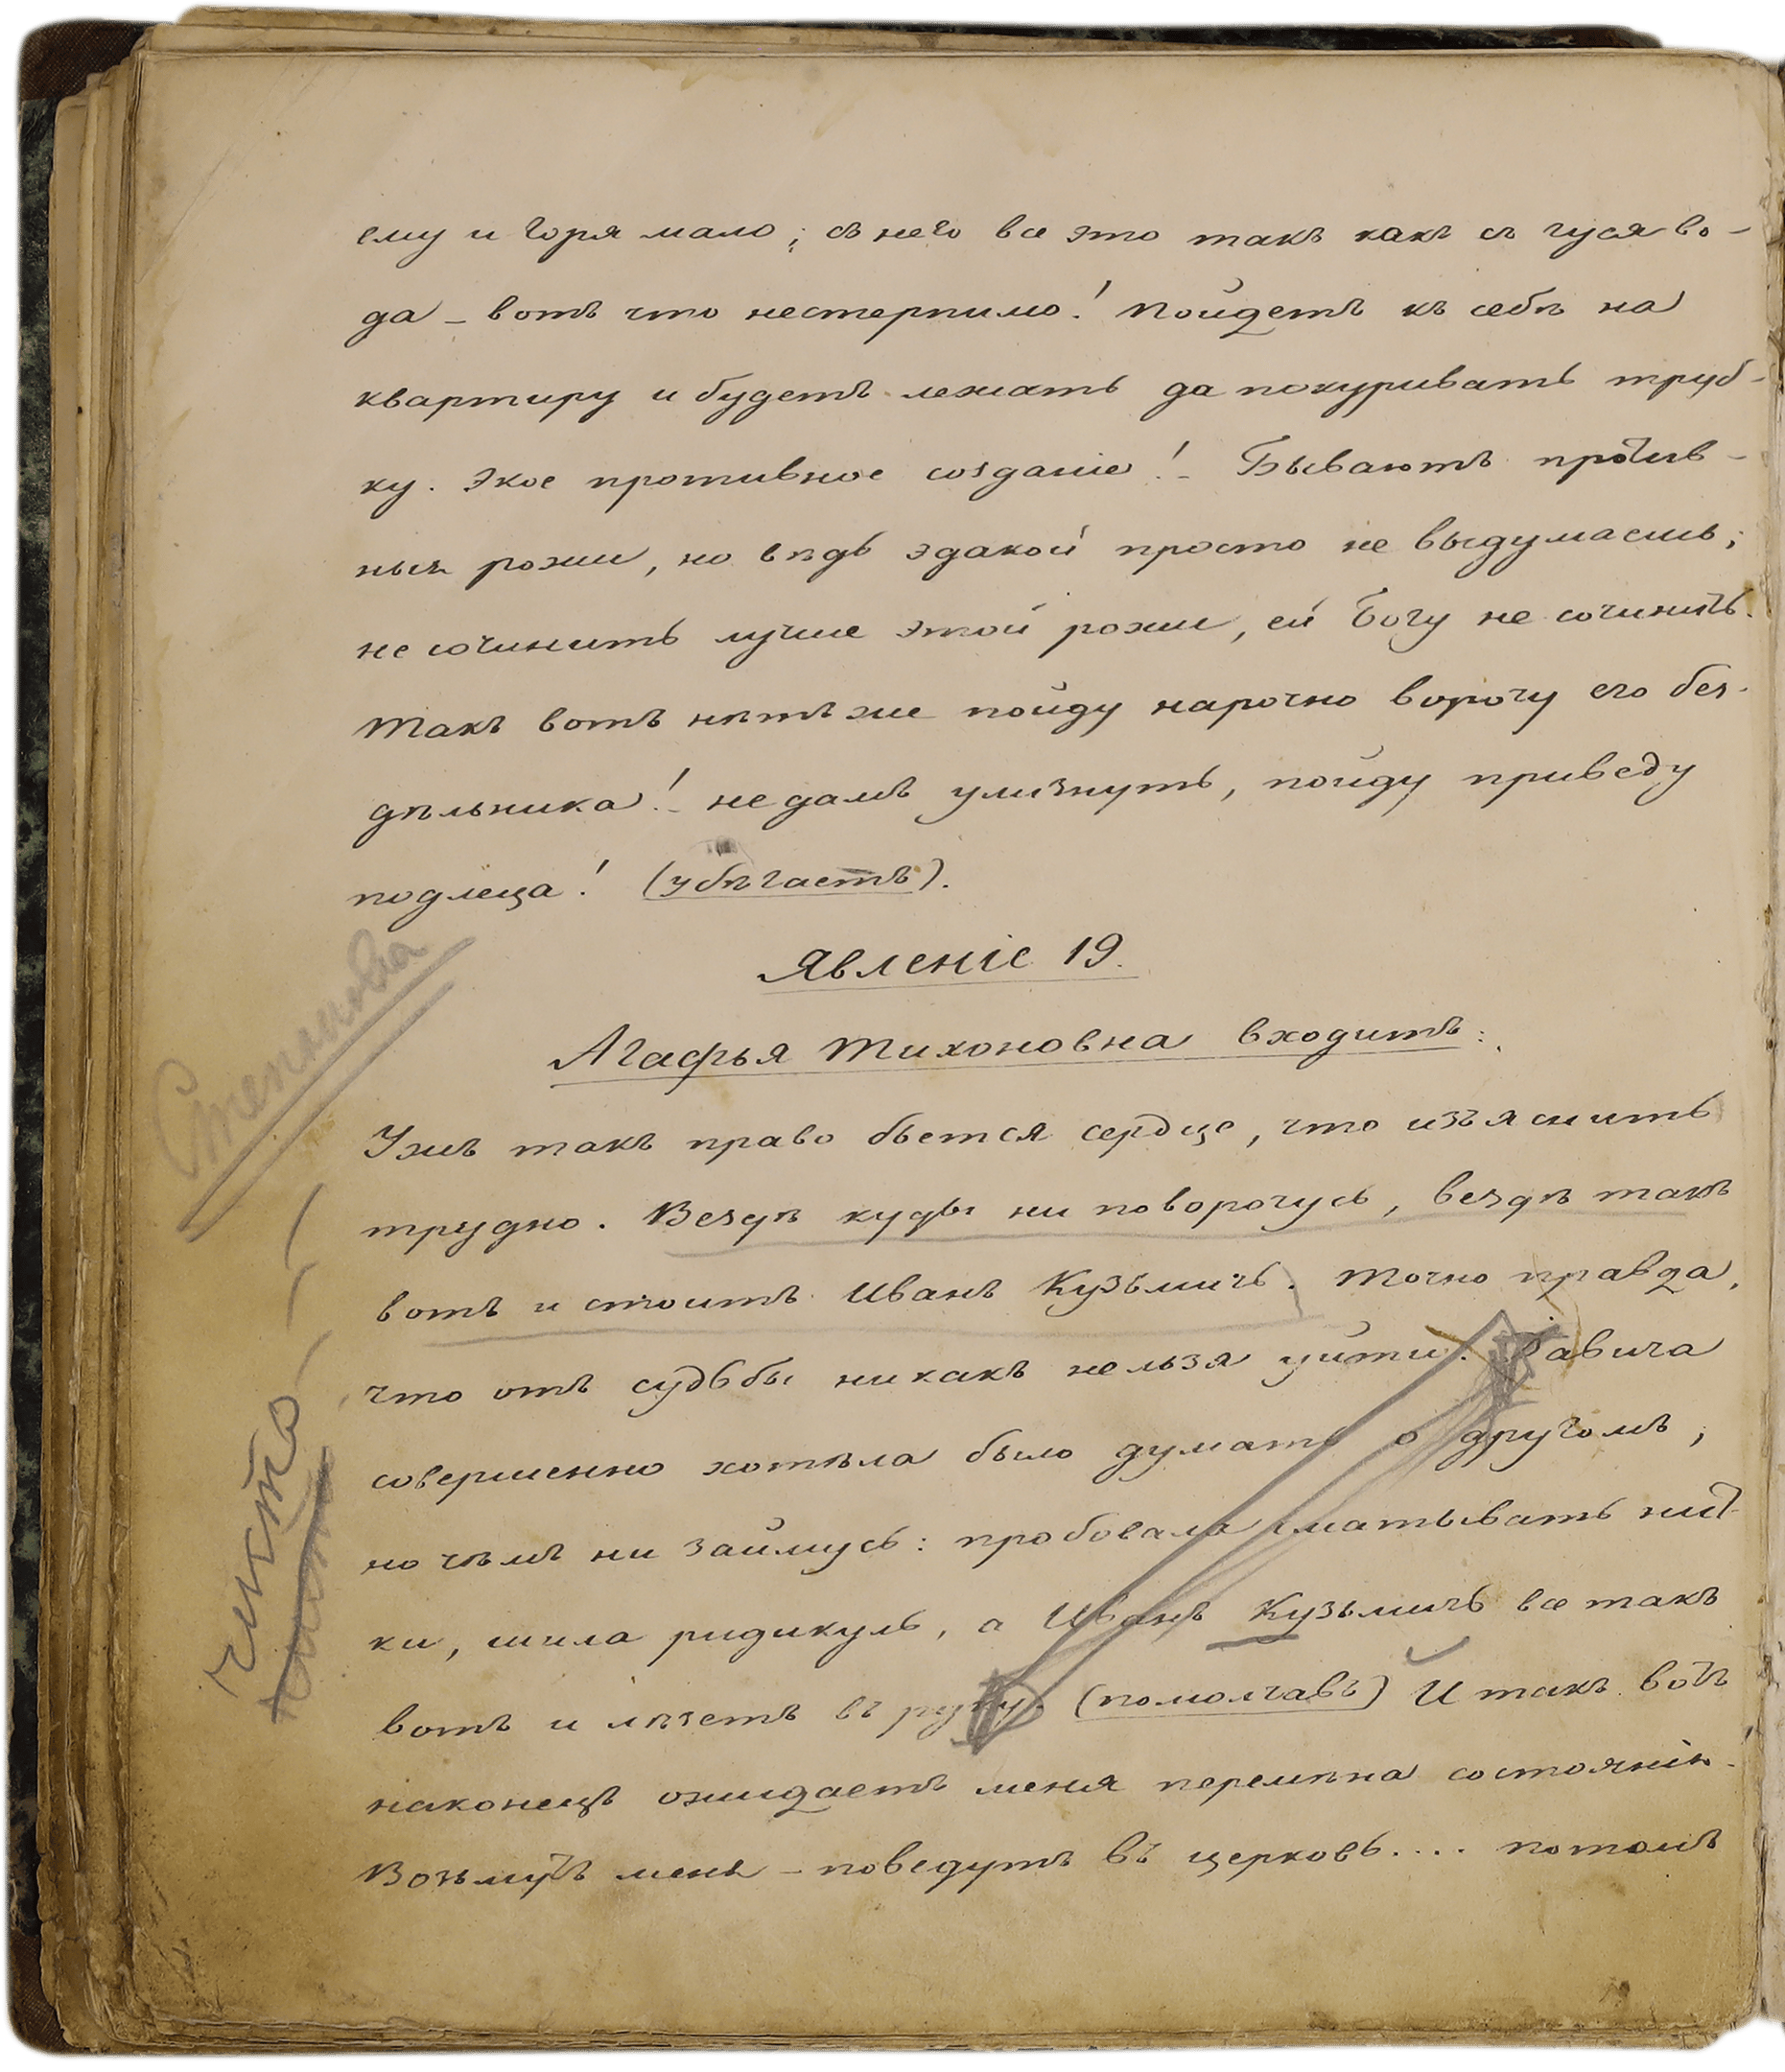 ему и горя мало; съ него все это такъ какъ съ гуся во-
да – вотъ что нестерпимо! Пойдетъ къ себѣ на
квартиру и будетъ лежать да покуривать труб-
ку. Экое противное созданіе! – Бываютъ против-
ныя рожи, но вѣдь эдакой просто не выдумаешь;
не сочинить лучше этой рожи, ей Богу не сочинить.
Такъ вотъ нѣтъ же пойду нарочно ворочу его без-
дѣльника! – не дамъ улизнуть, пойду приведу
подлеца! (убѣгаетъ).
Явленіе 19.
Агафья Тихоновна входитъ:
Ужъ такъ право бьется сердце, что изъяснить
трудно. Вездѣ куды ни поворочусь, вездѣ такъ
вотъ и стоитъ Иванъ Кузьмичъ. Точно правда,
что отъ судьбы никакъ нельзя уйти. Давича
совершенно хотѣла было думать о другомъ;
но чѣмъ ни займусь: пробовала сматывать нит-
ки, шила ридикуль, а Иванъ Кузьмичъ все такъ
вотъ и лѣзетъ въ руку. (помолчавъ) И такъ вотъ
наконецъ ожидаетъ меня перемѣна состоянію.
Возьмутъ меня – поведутъ въ церковь.... потомъ
Степанова
чисто